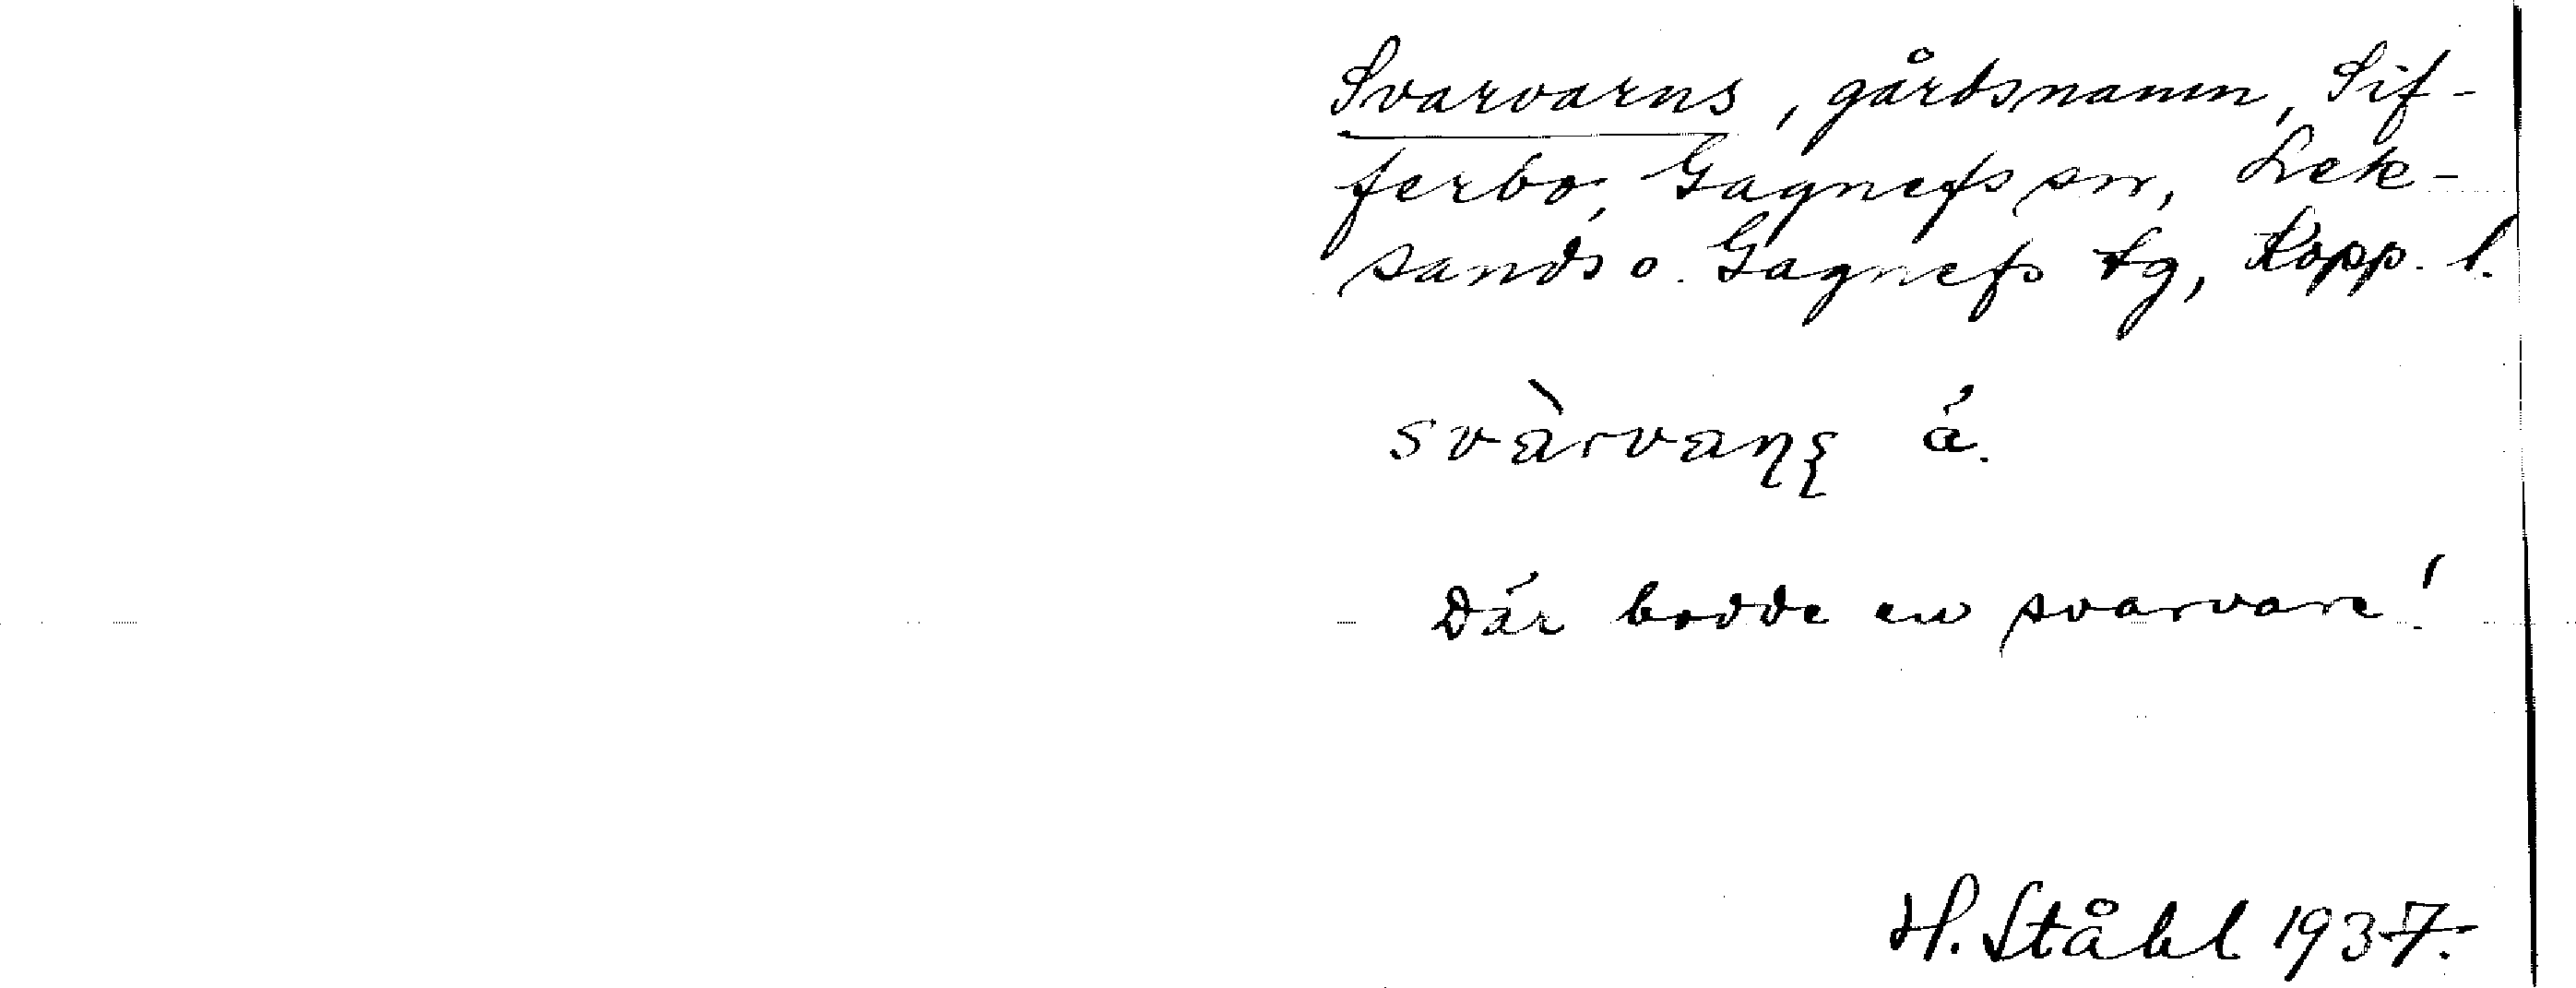 Svarvarns, gårdsnamn, Sif-
ferbo, Gagnefs sn, Lek-
sands o. Gagnefs tg, Kopp. l.
svàrvaṇṣ á.
Där bodde en svarvare!
H. Ståhl 1937.